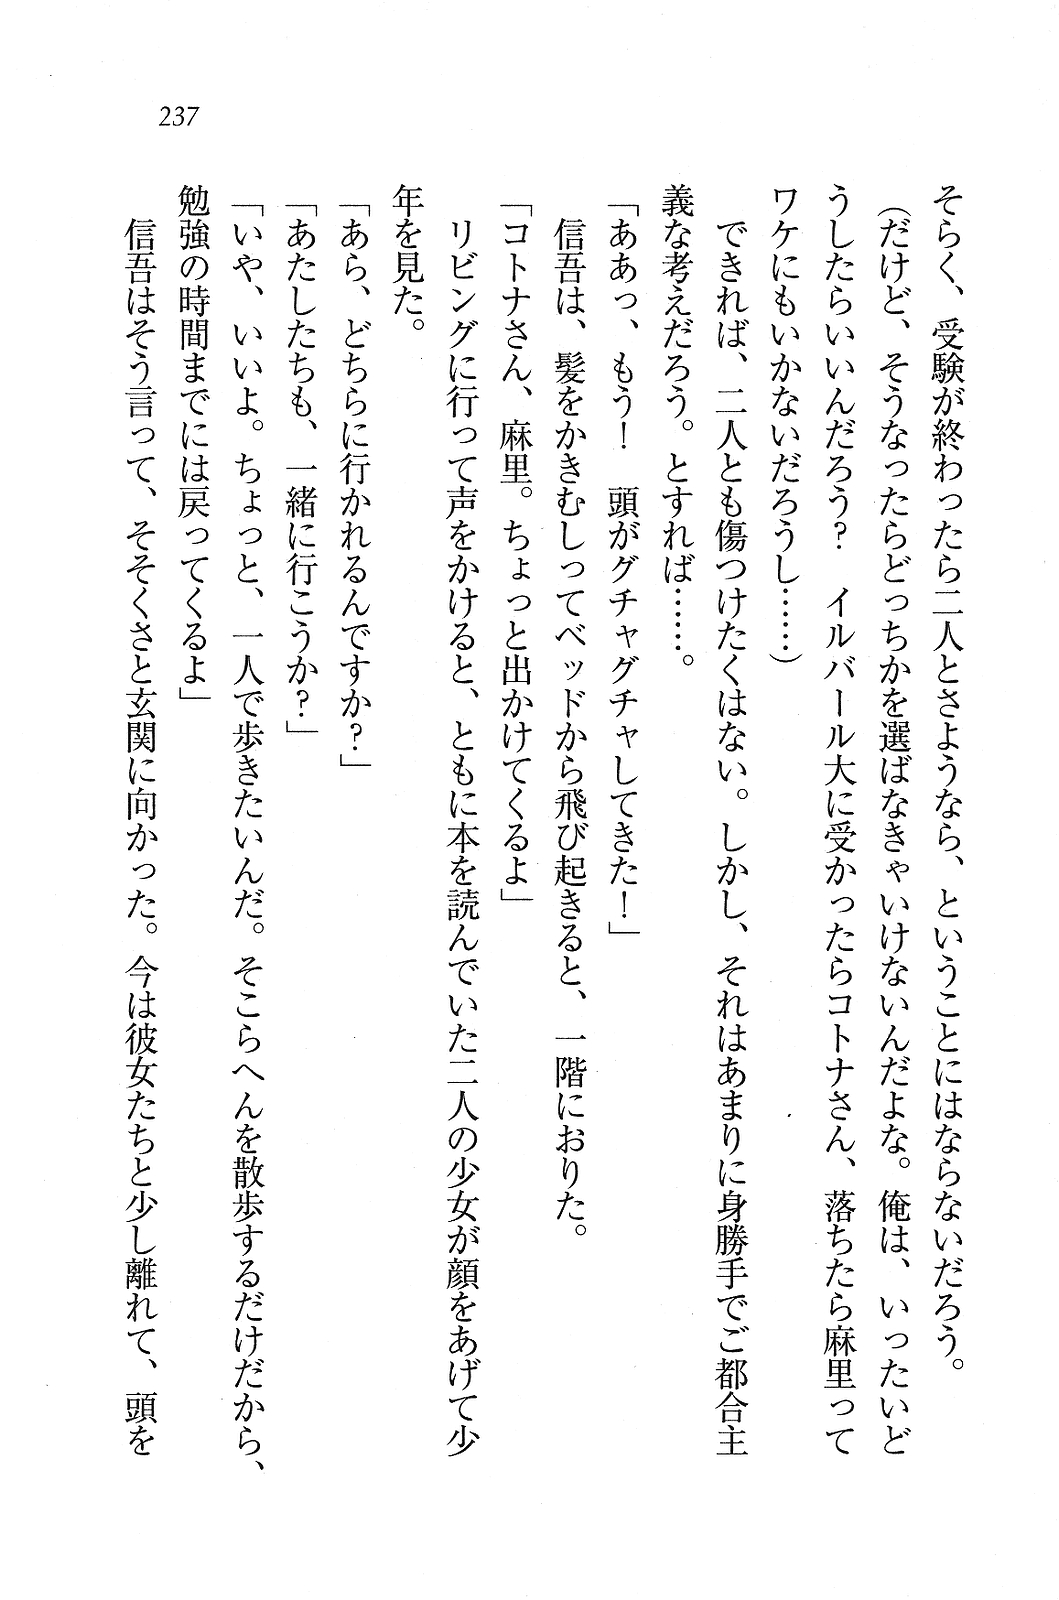 237
そらく、受験が終わったら二人とさようなら、ということにはならないだろう。
（だけど、そうなったらどっちかを選ばなきゃいけないんだよな。俺は、いったいど
うしたらいいんだろう？　イルバール大に受かったらコトナさん、落ちたら麻里って
ワケにもいかないだろうし……）
　できれば、二人とも傷つけたくはない。しかし、それはあまりに身勝手でご都合主
義な考えだろう。とすれば……。
「ああっ、もう！　頭がグチャグチャしてきた！」
　信吾は、髪をかきむしってベッドから飛び起きると、一階におりた。
「コトナさん、麻里。ちょっと出かけてくるよ」
　リビングに行って声をかけると、ともに本を読んでいた二人の少女が顔をあげて少
年を見た。
「あら、どちらに行かれるんですか？」
「あたしたちも、一緒に行こうか？」
「いや、いいよ。ちょっと、一人で歩きたいんだ。そこらへんを散歩するだけだから、
勉強の時間までには戻ってくるよ」
　信吾はそう言って、そそくさと玄関に向かった。今は彼女たちと少し離れて、頭を